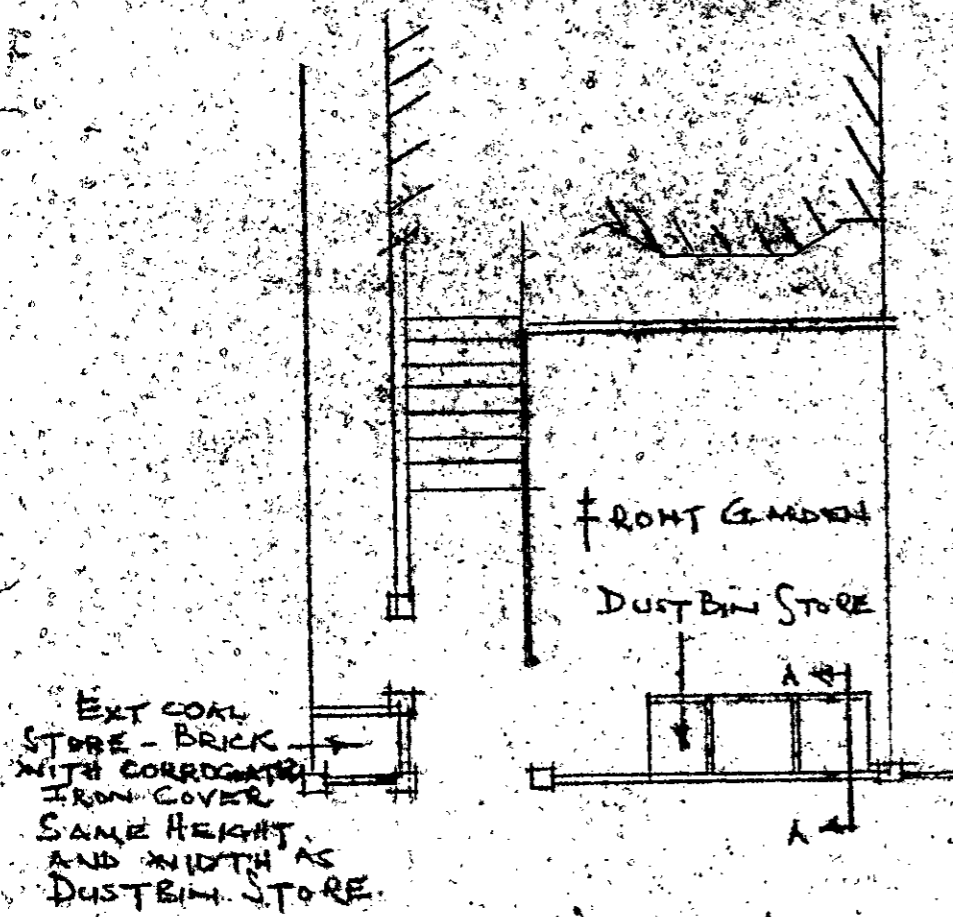 FRONT GARDEN
DUSTBIN STORE
A
A
EXT COAL
STORE - BRICK
WITH CORROGATED
IRON COVER
SAME HEIGHT
AND WIDTH AS
DUSTBIN STORE.